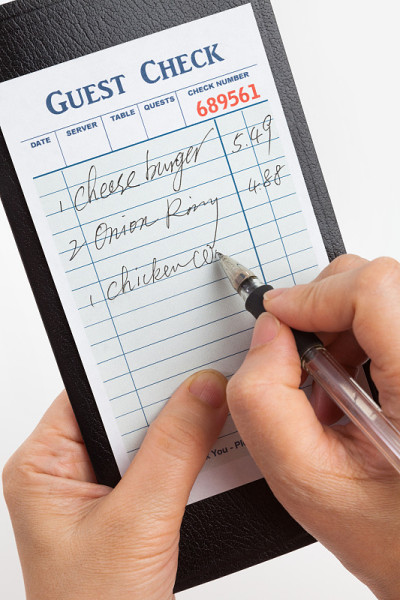 GUEST CHECK
DATE SERVER TABLE GUESTS CHECK NUMBER
689561
1 cheese burger 5.49
2 Onion Ring 4.88
1 chicken
You - Pl